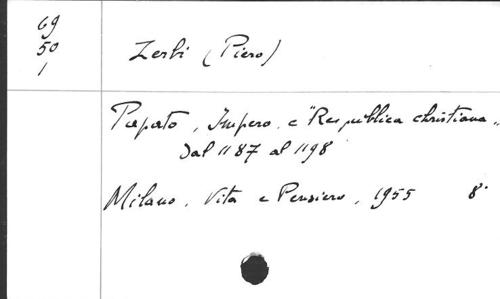 69
50
1
Zerbi (Piero)
Papato, Impero, e "Respublica christiana"
dal 1187 al 1198
Milano, Vita e Pensiero, 1955 8°